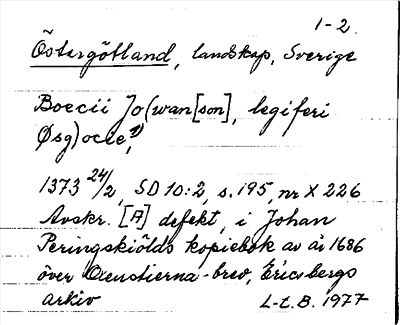 1-2.
Östergötland, landskap, Sverige
Boecii Jo(wan[son], legiferi
Øsg)ocie,¹⁾
1373 24/2, SD 10:2, s. 195, nr X 226
Avskr. [A] defekt, i Johan
Peringskiölds kopiebok av år 1686
över Oxenstierna-brev, Ericsbergs
arkiv L-t. B. 1977